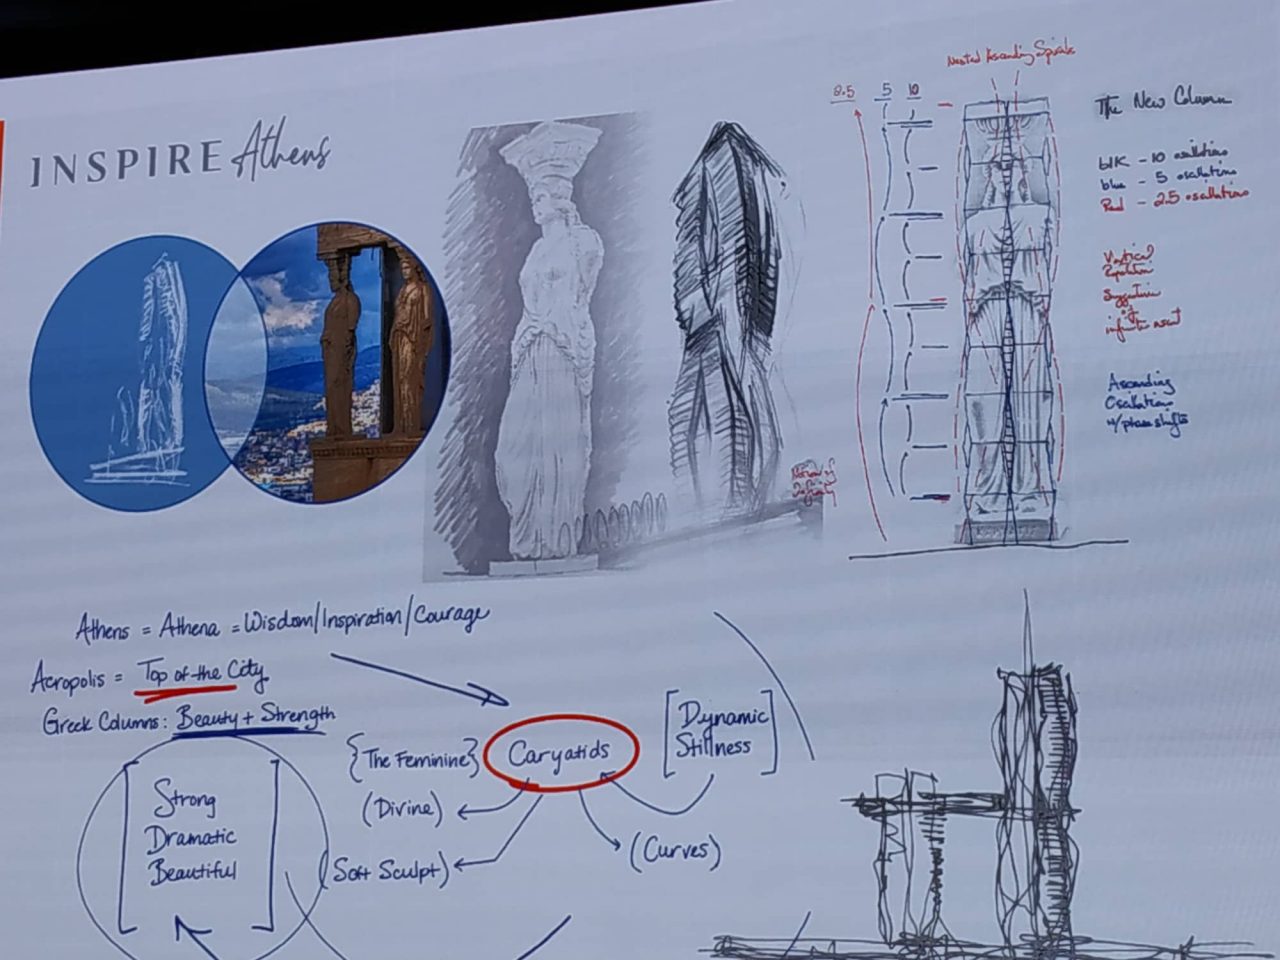 INSPIRE Athens
Nested Ascending Spirals
2.5 5 10
The New Column
blk - 10 oscillations
blue - 5 oscillations
Red - 2.5 oscillations
Vertical
Repetition
infinite
Ascending
Oscillations
w/phase shifts
Athens = Athena = Wisdom/Inspiration/Courage
Acropolis = Top of the City
Greek Columns: Beauty + Strength
Strong
Dramatic
Beautiful
{The Feminine}
Caryatids
[Dynamic
Stillness]
(Divine)
(Soft Sculpt)
(Curves)